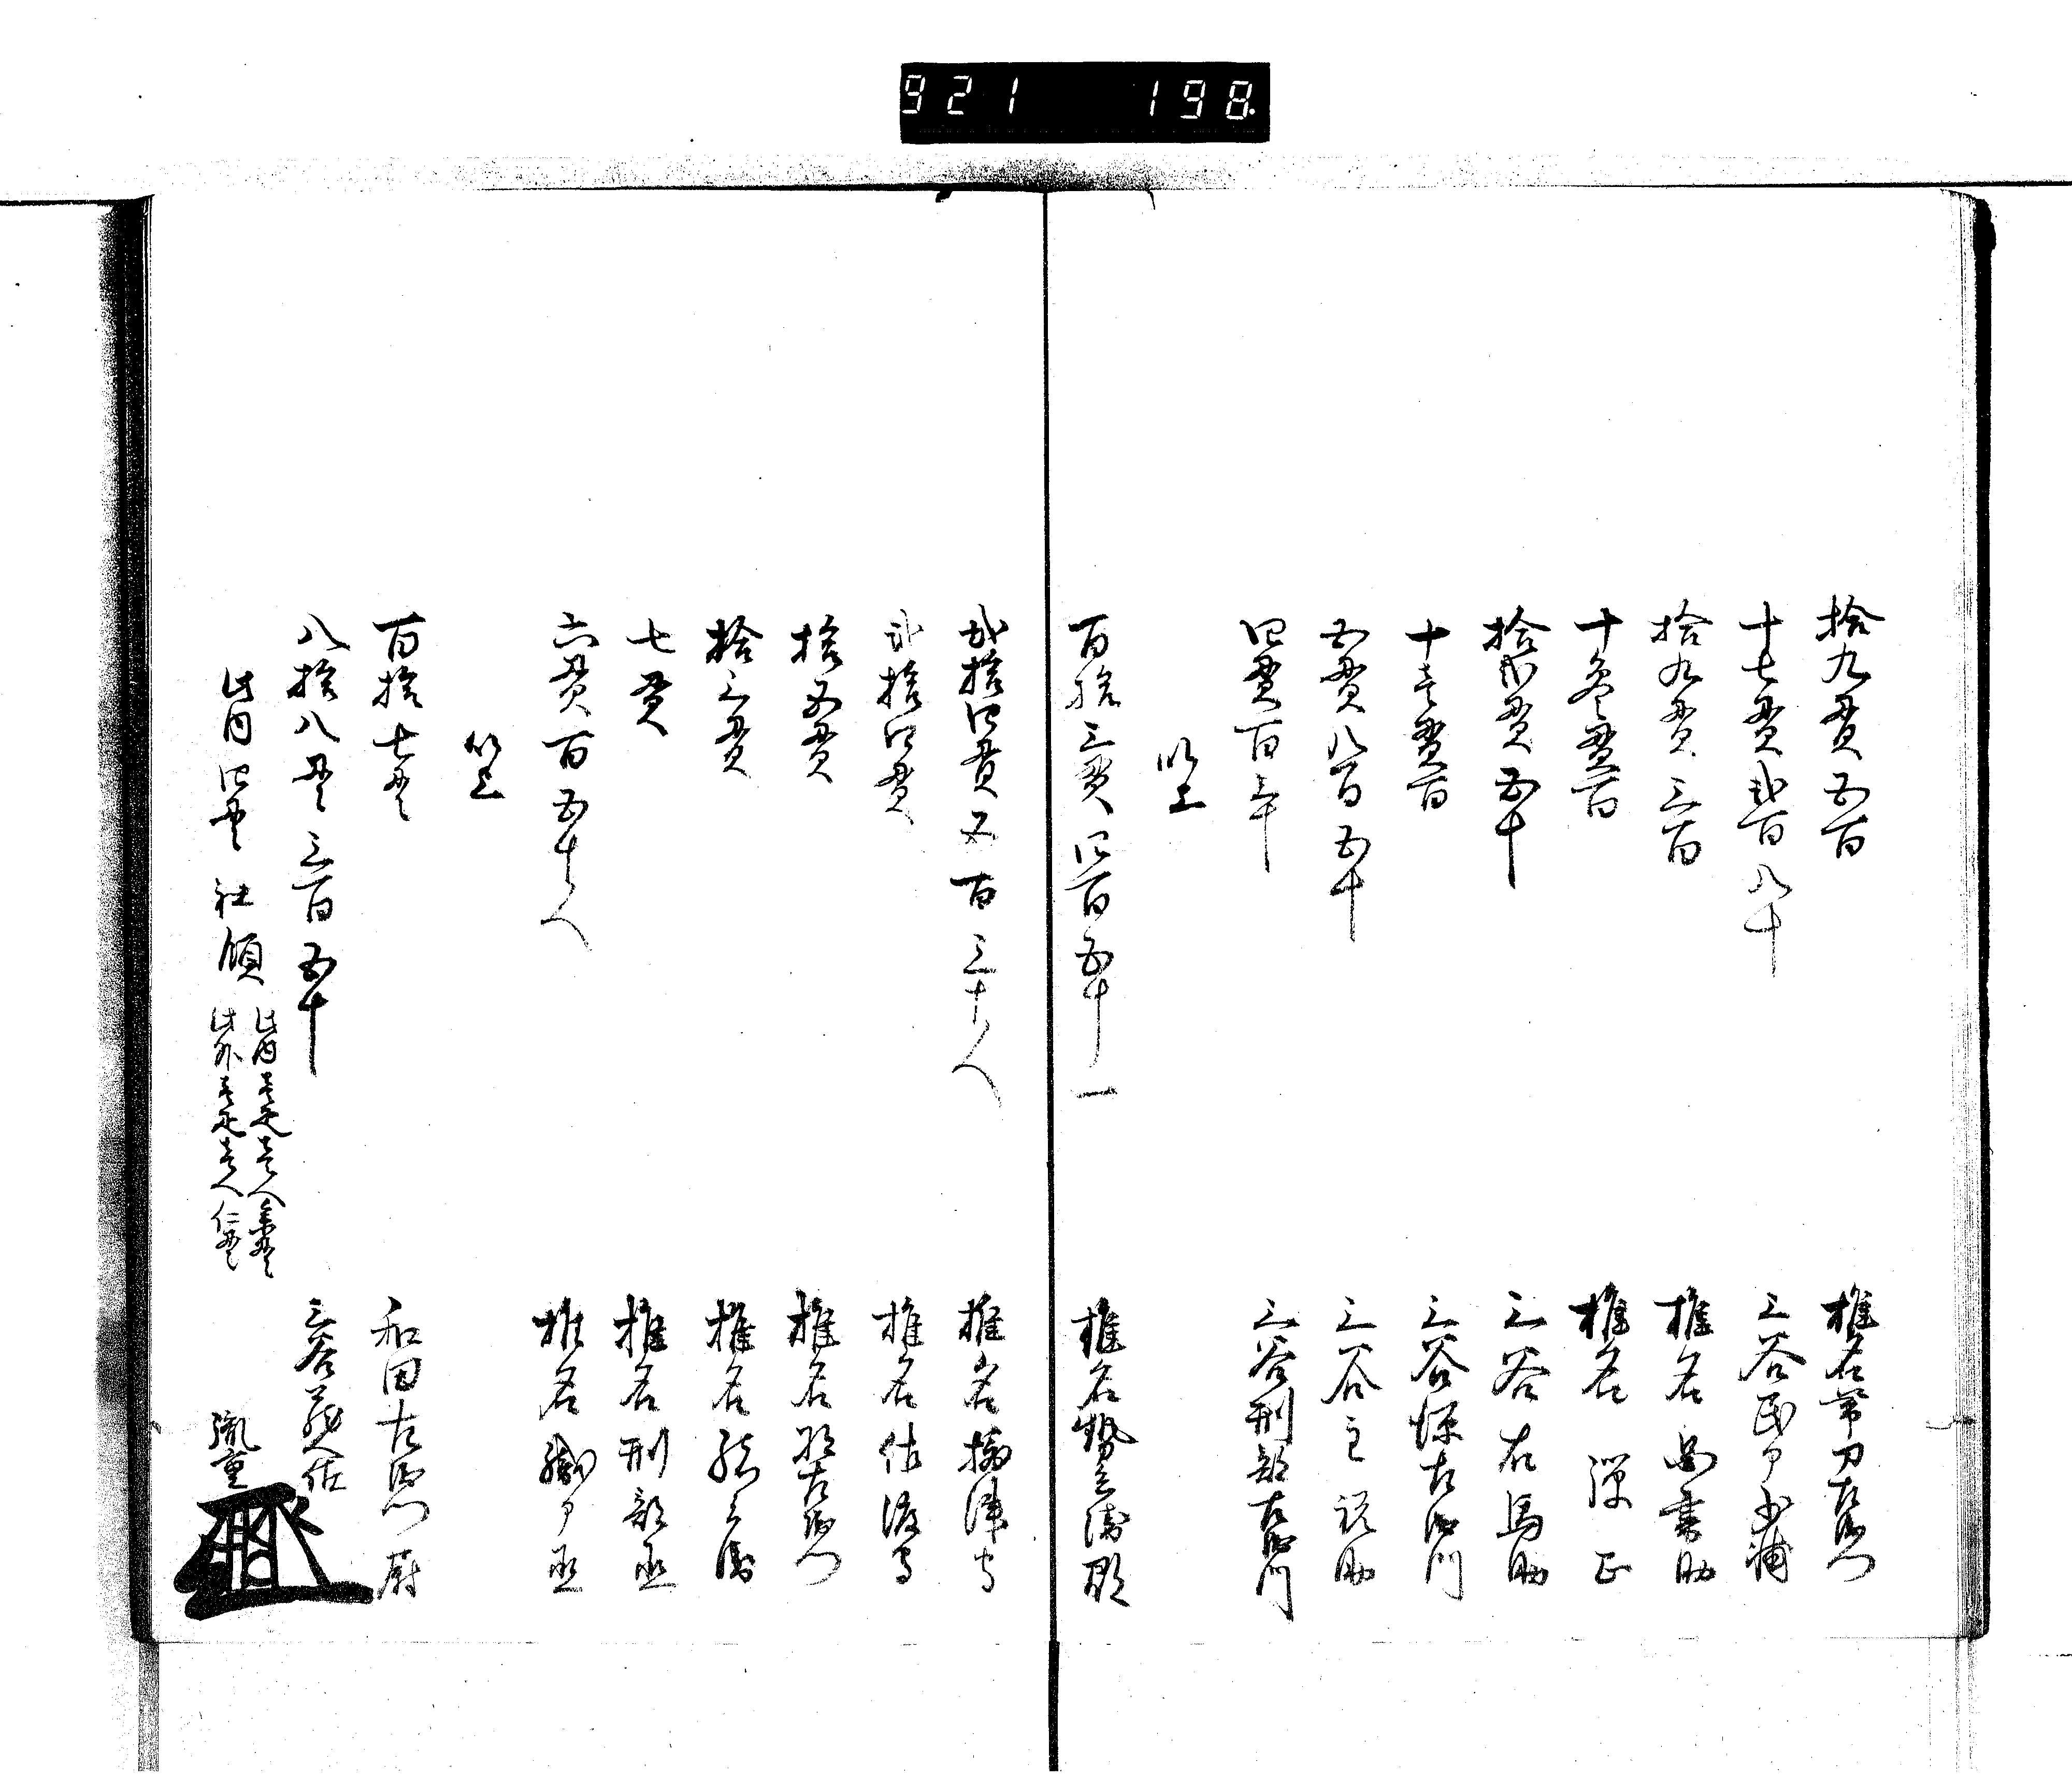 921 198
拾九貫五百 椎名帯刀左衛門
十七貫弐百八十 三谷民部少輔
拾九貫三百 椎名図書助
十壱貫百 椎名弾正
拾弐貫五十 三谷右馬助
十壱貫百 三谷源左衛門
五貫八百五十 三谷主税助
四貫百 三谷刑部左衛門
以上
百拾三貫四百五十一 椎名勢兵衛
弐拾四貫五百三十八 椎名摂津守
弐拾四貫 椎名佐渡守
拾五貫 椎名左衛門
拾三貫 椎名兵衛
七貫 椎名刑部丞
六貫百五十八 椎名織部丞
以上
百拾七貫 和田左衛門尉
八拾八貫三百五十 三谷蔵人佐
此内四貫社領
此内壱疋壱人
此外壱疋壱人
胤重